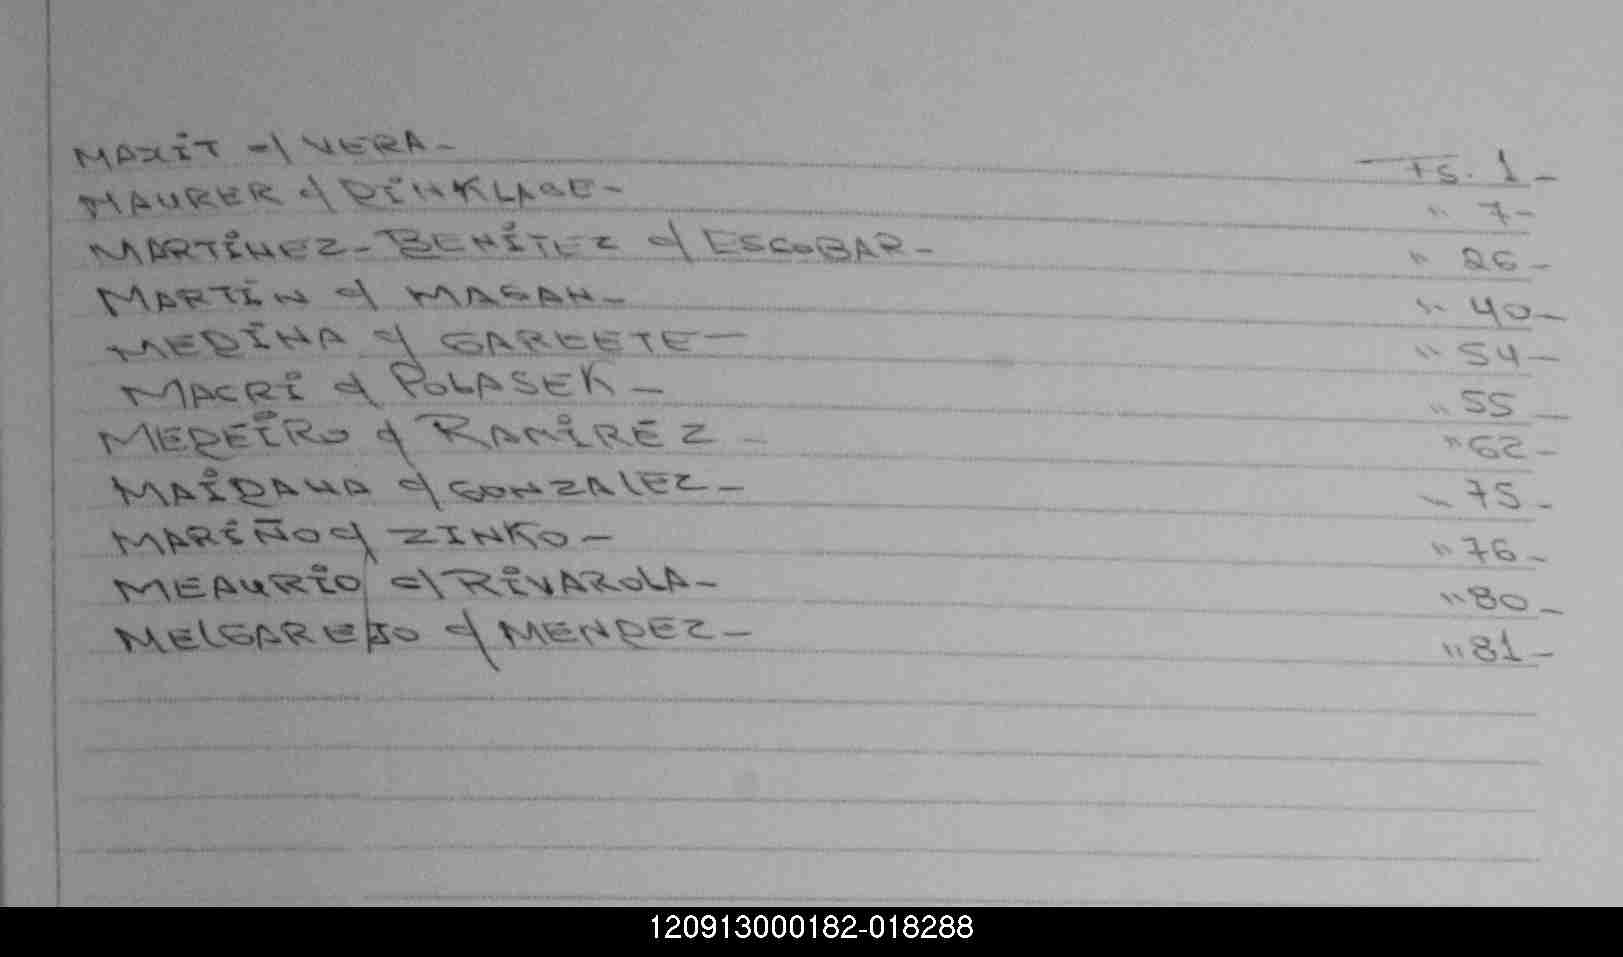 MAXIT c/ VERA- Fs. 1-
MAURER c/ DINKLAGE- " 7-
MARTINEZ-BENITEZ c/ ESCOBAR- " 26-
MARTIN c/ MASAN- " 40-
MEDINA c/ GARCETE- " 54-
MACRI c/ POLASEK- " 55-
MEDEIRO c/ RAMIREZ- " 62-
MAIDANA c/ GONZALEZ- " 75-
MARIÑO c/ ZINKO- " 76-
MEAURIO c/ RIVAROLA- " 80-
MELGAREJO c/ MENDEZ- " 81-
120913000182-018288